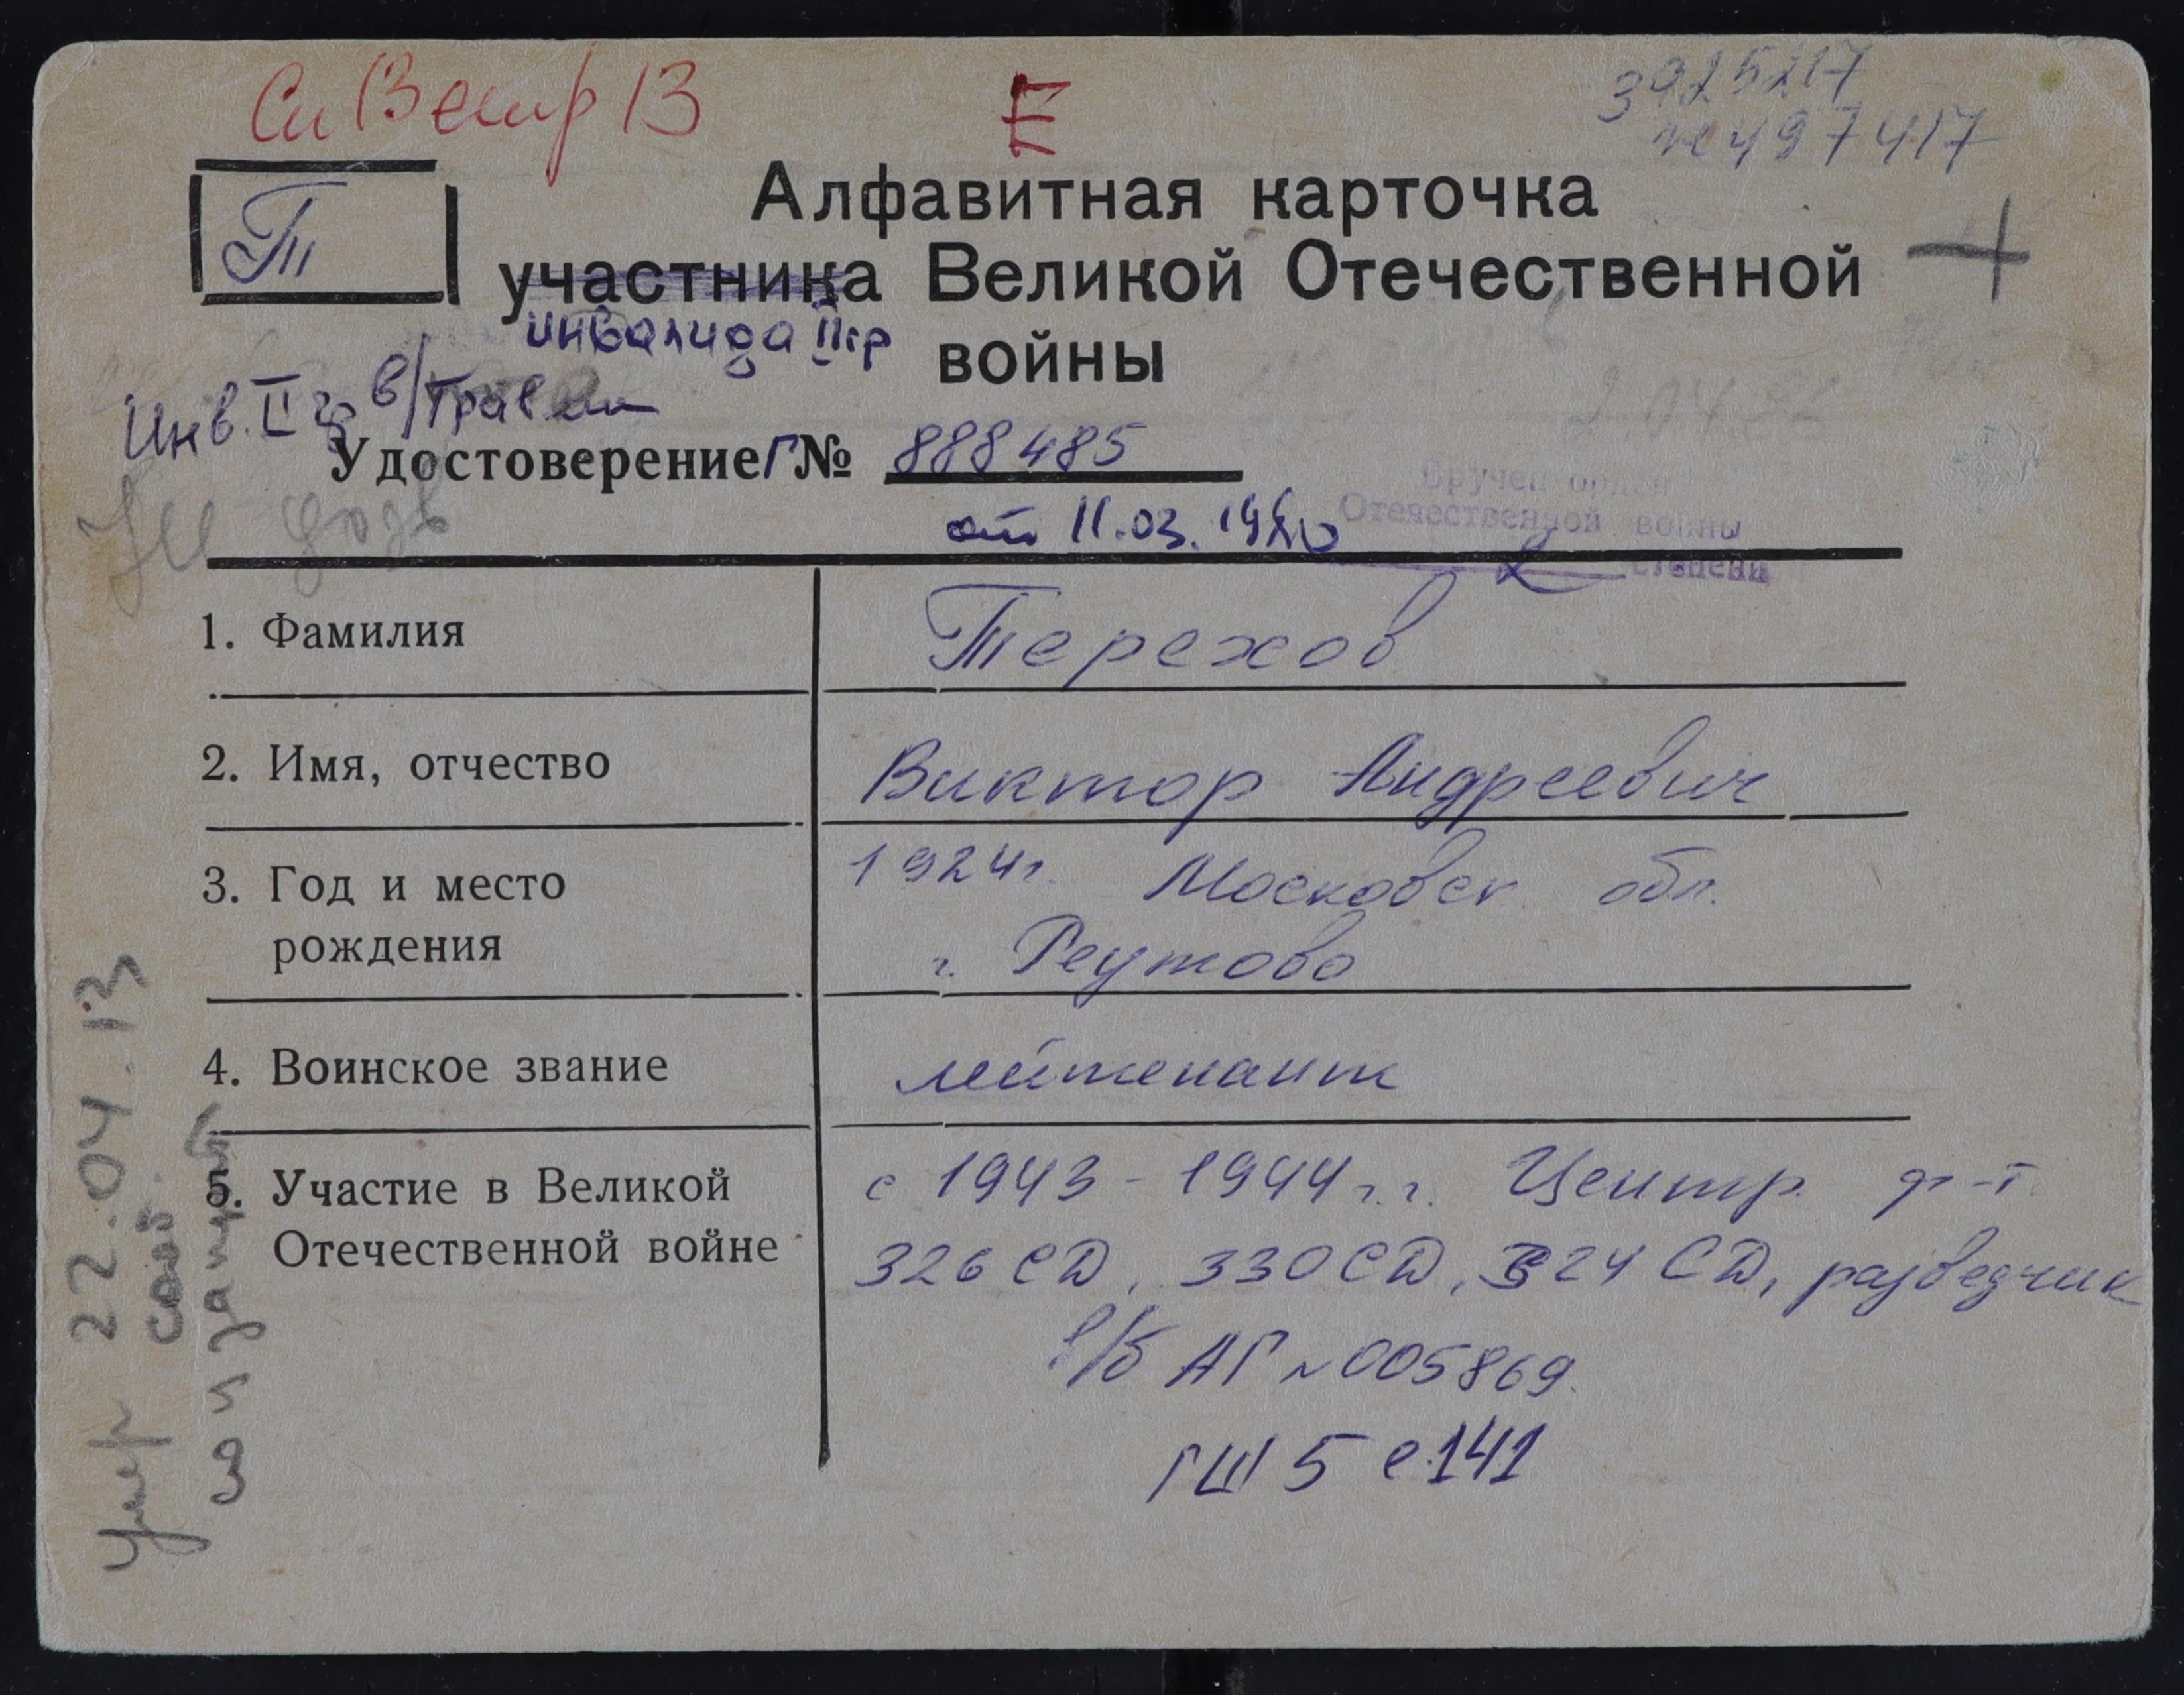 Е
3925217
497417
Т
Алфавитная карточка
участника Великой Отечественной
инвалида II гр войны
Инв. II гр в/травм
Удостоверение Г № 888485
от 11.03.19
Вручен орден
Отечественной войны
2 степени
1. Фамилия Терехов
2. Имя, отчество Виктор Андреевич
3. Год и место рождения 1924г. Московск. обл.
г. Реутово
4. Воинское звание лейтенант
5. Участие в Великой Отечественной войне с 1943-1944 г.г. Центр. ф-т.
326 СД, 330 СД, 324 СД, разведчик
в/б АГ № 005869.
ГШ 5 с.141
умер 22.04.13